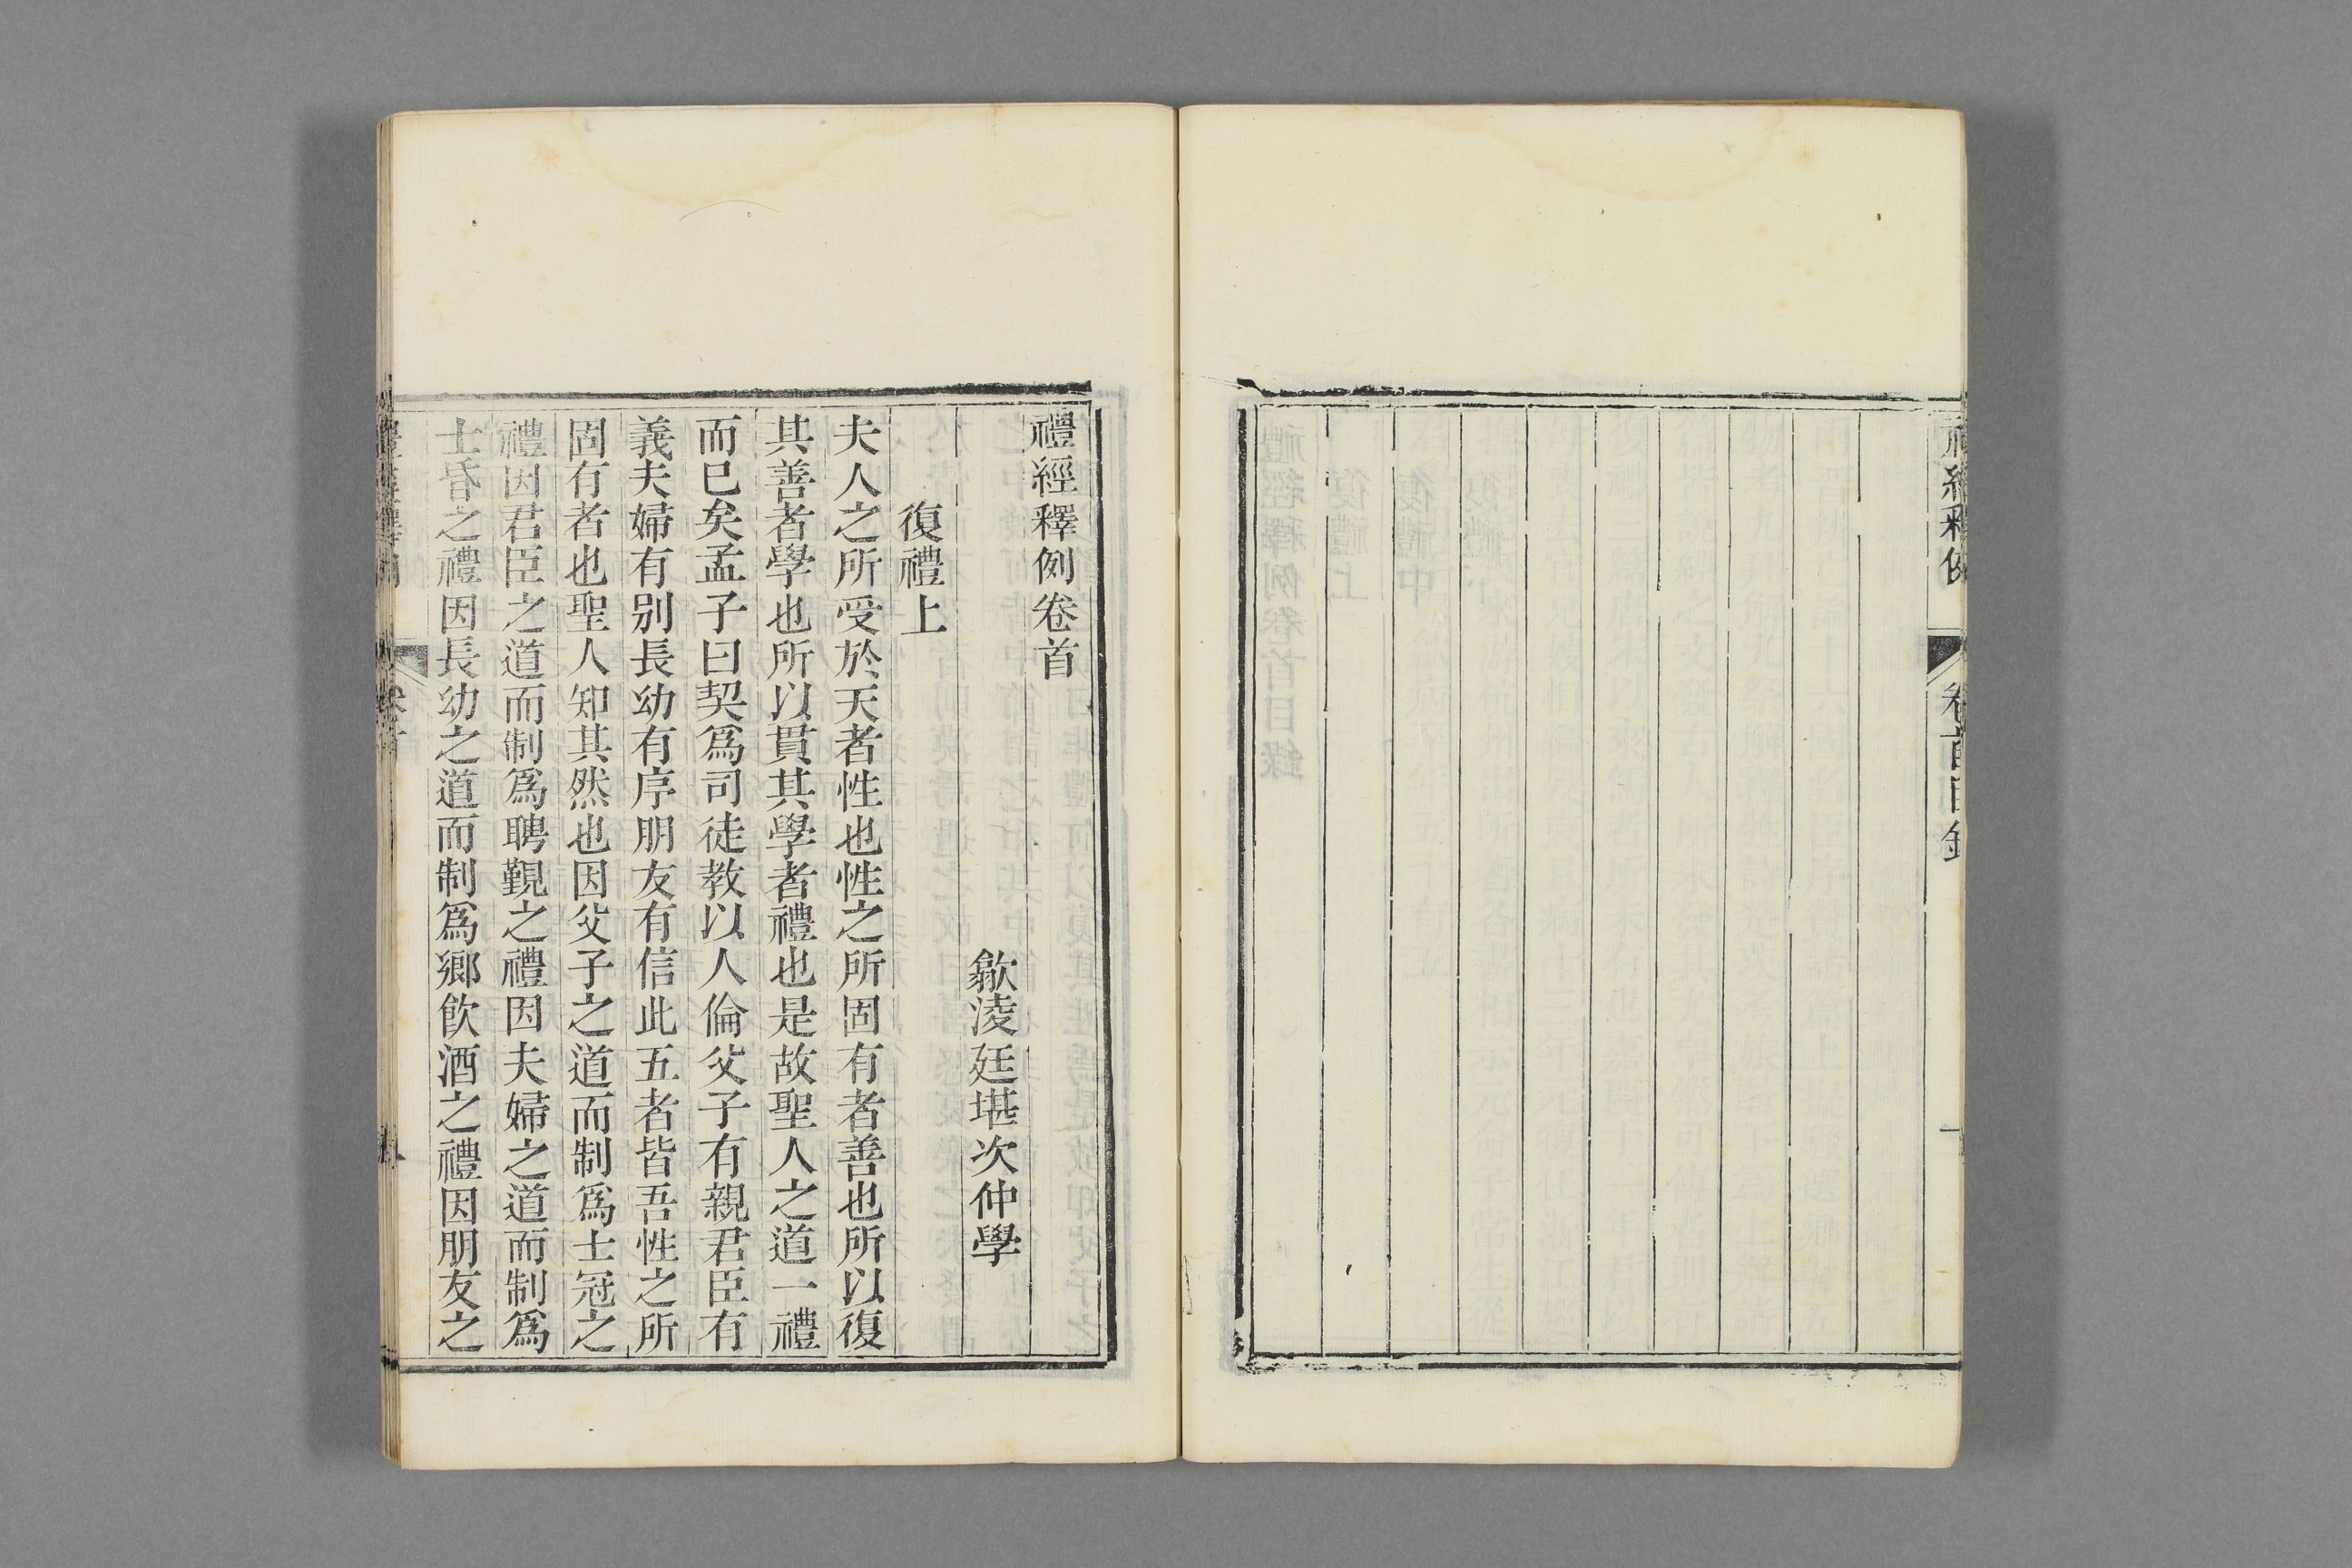 禮經釋例
卷首目錄
一
禮經釋例卷首
歙淩廷堪次仲學
復禮上
夫人之所受於天者性也性之所固有者善也所以復
其善者學也所以貫其學者禮也是故聖人之道一禮
而已矣孟子曰契爲司徒教以人倫父子有親君臣有
義夫婦有别長幼有序朋友有信此五者皆吾性之所
固有者也聖人知其然也因父子之道而制爲士冠之
禮因君臣之道而制爲聘覲之禮因夫婦之道而制爲
士昏之禮因長幼之道而制爲鄉飲酒之禮因朋友之